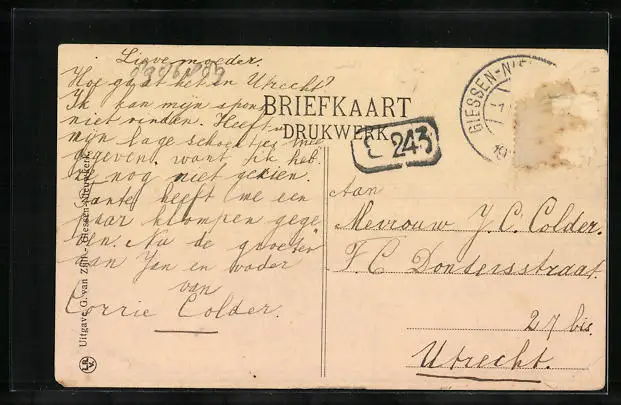 Lieve moeder.
Hoe gaat het in Utrecht?
Ik kan mijn spons
niet vinden. Heeft u
mijn lage schoentjes mee
gegeven, want ik heb
ze nog niet gezien.
Tante heeft me een
paar klompen gege
ven. Nu de groeten
van Jan en vader
van
Corrie Colder.
BRIEFKAART
DRUKWERK
243
GIESSEN-NI
Aan
Mevrouw J. C. Colder.
F. C. Dondersstraat.
27 bis.
Utrecht.
Uitgave G. van Zijl - Giessen-Nieuwkerk